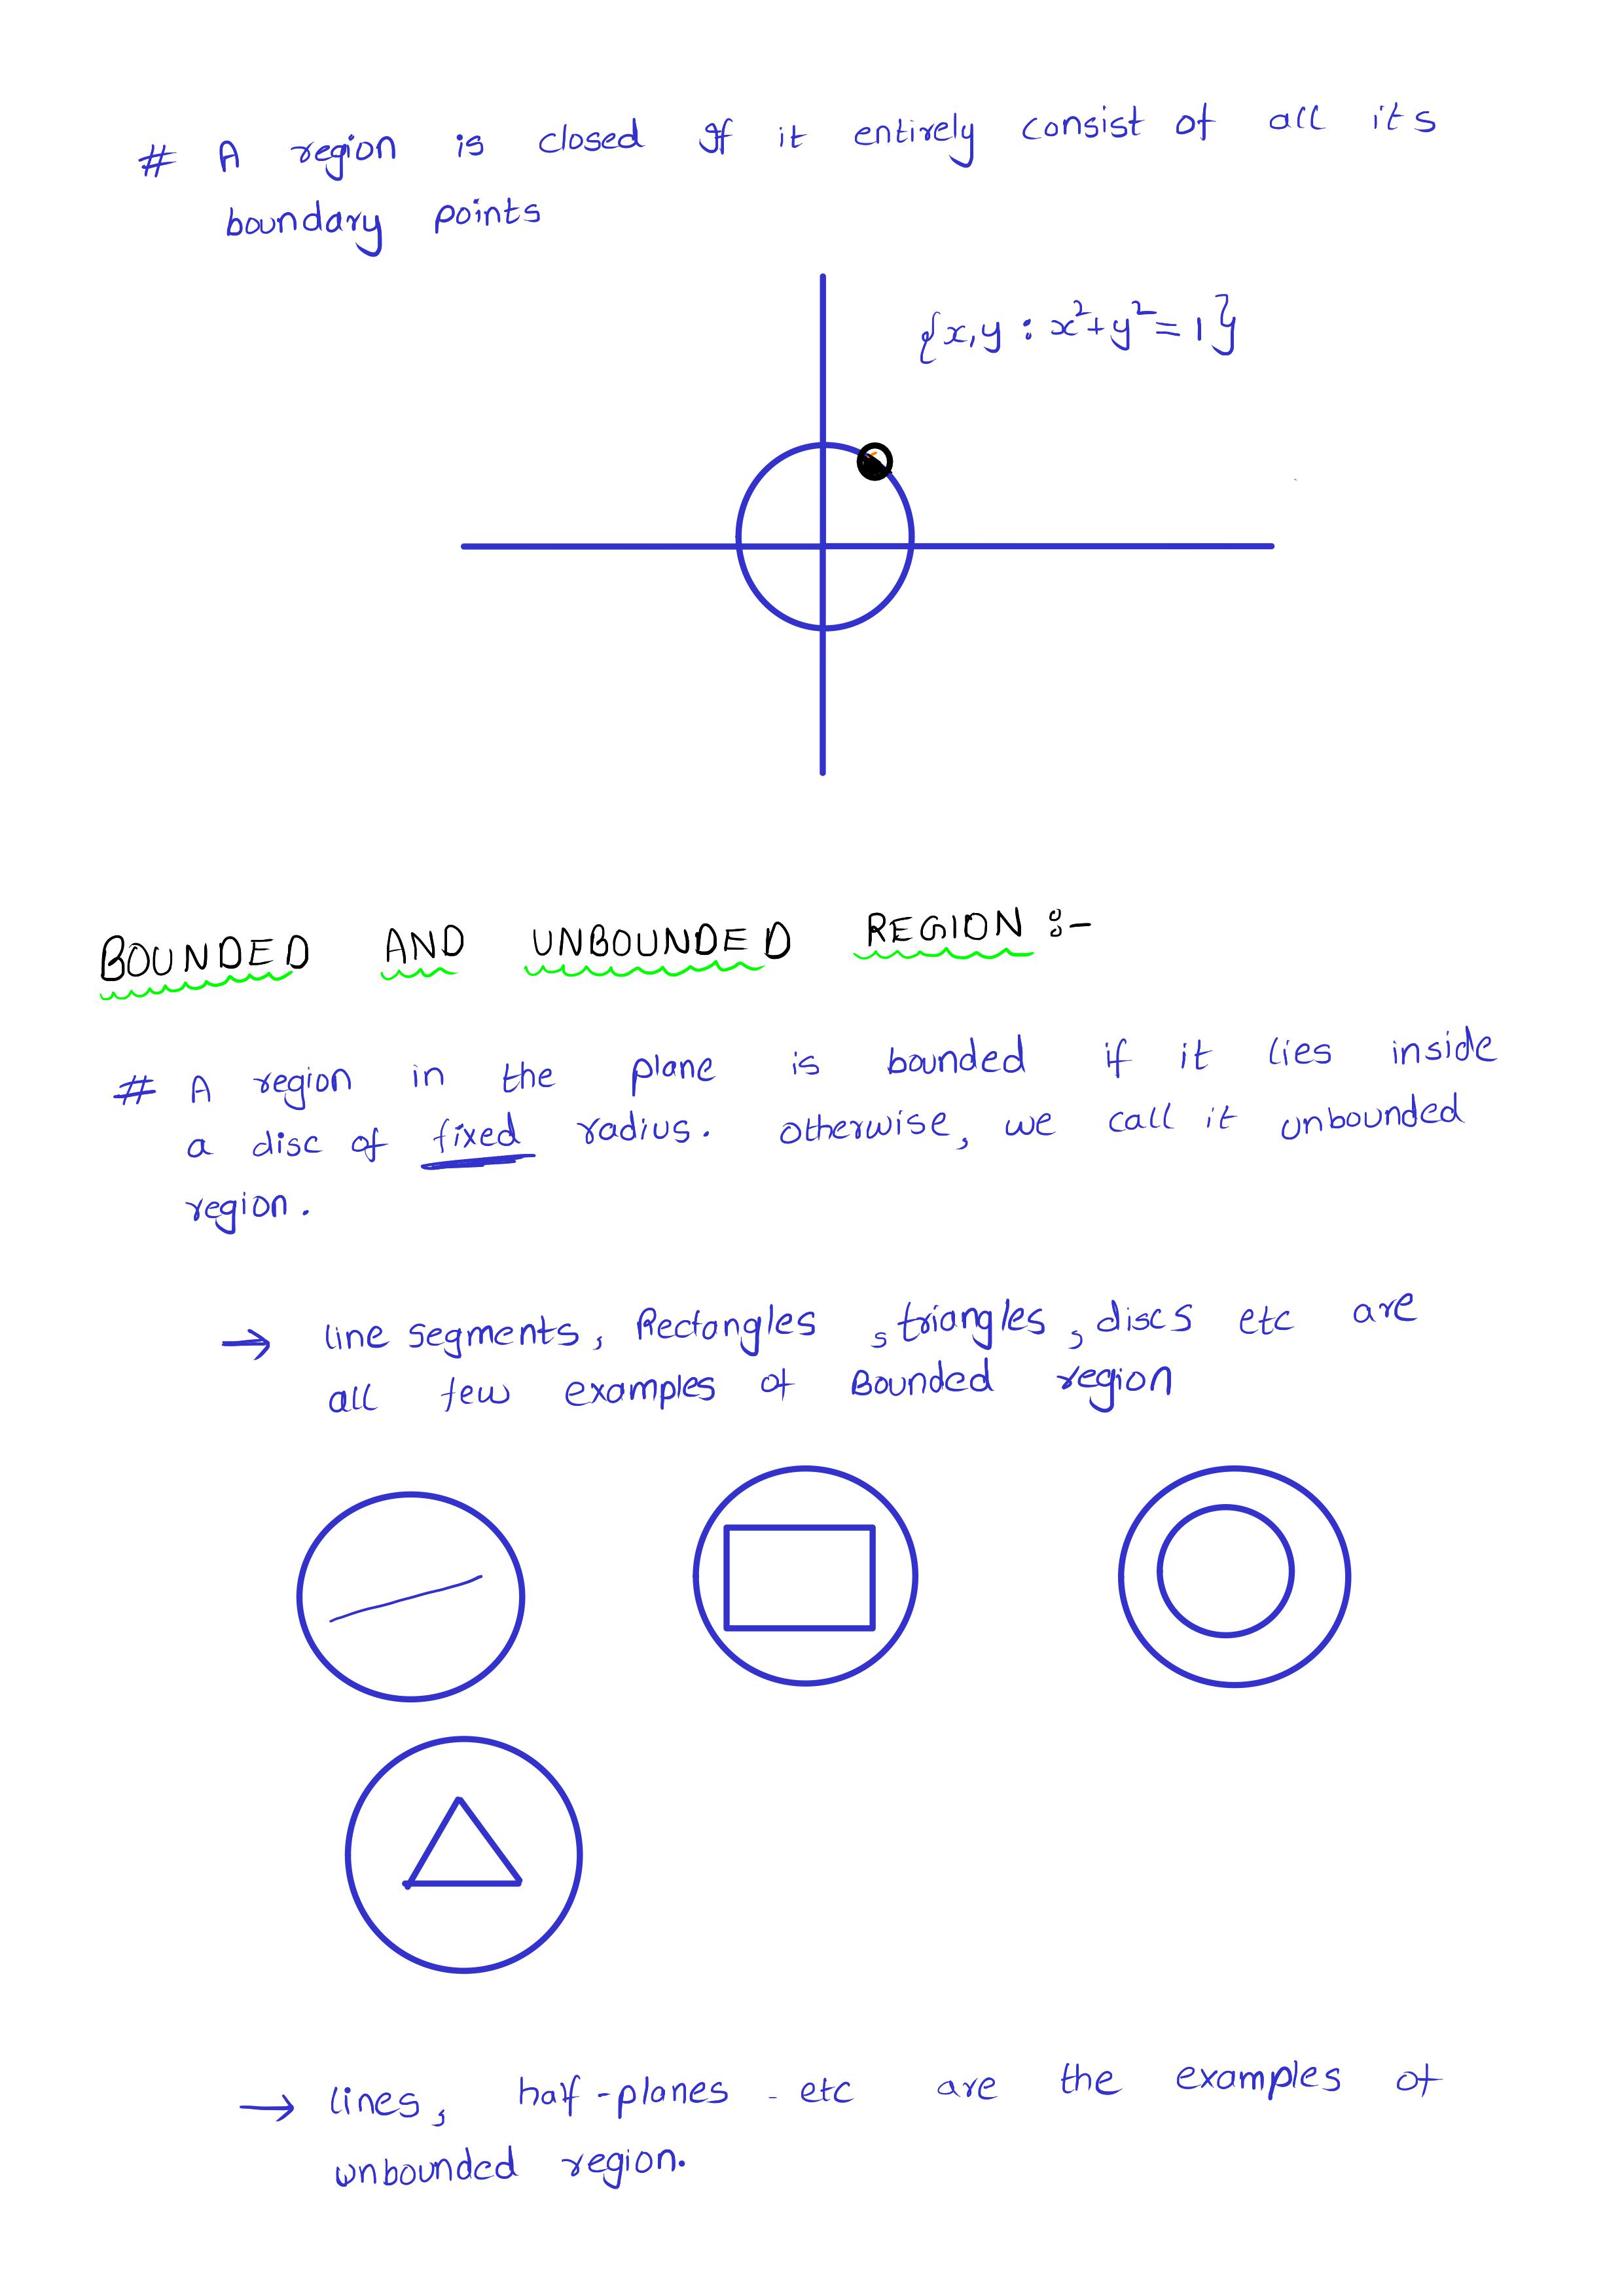 # A region is closed If it entirely consist of all its
boundary points
{x,y : x²+y²=1}
BOUNDED AND UNBOUNDED REGION :-
# A region in the plane is bounded if it lies inside
a disc of fixed radius. otherwise, we call it unbounded
region.
→ line segments, Rectangles , triangles, discs etc are
all few examples of Bounded region
→ lines, half-planes - etc are the examples of
unbounded region.